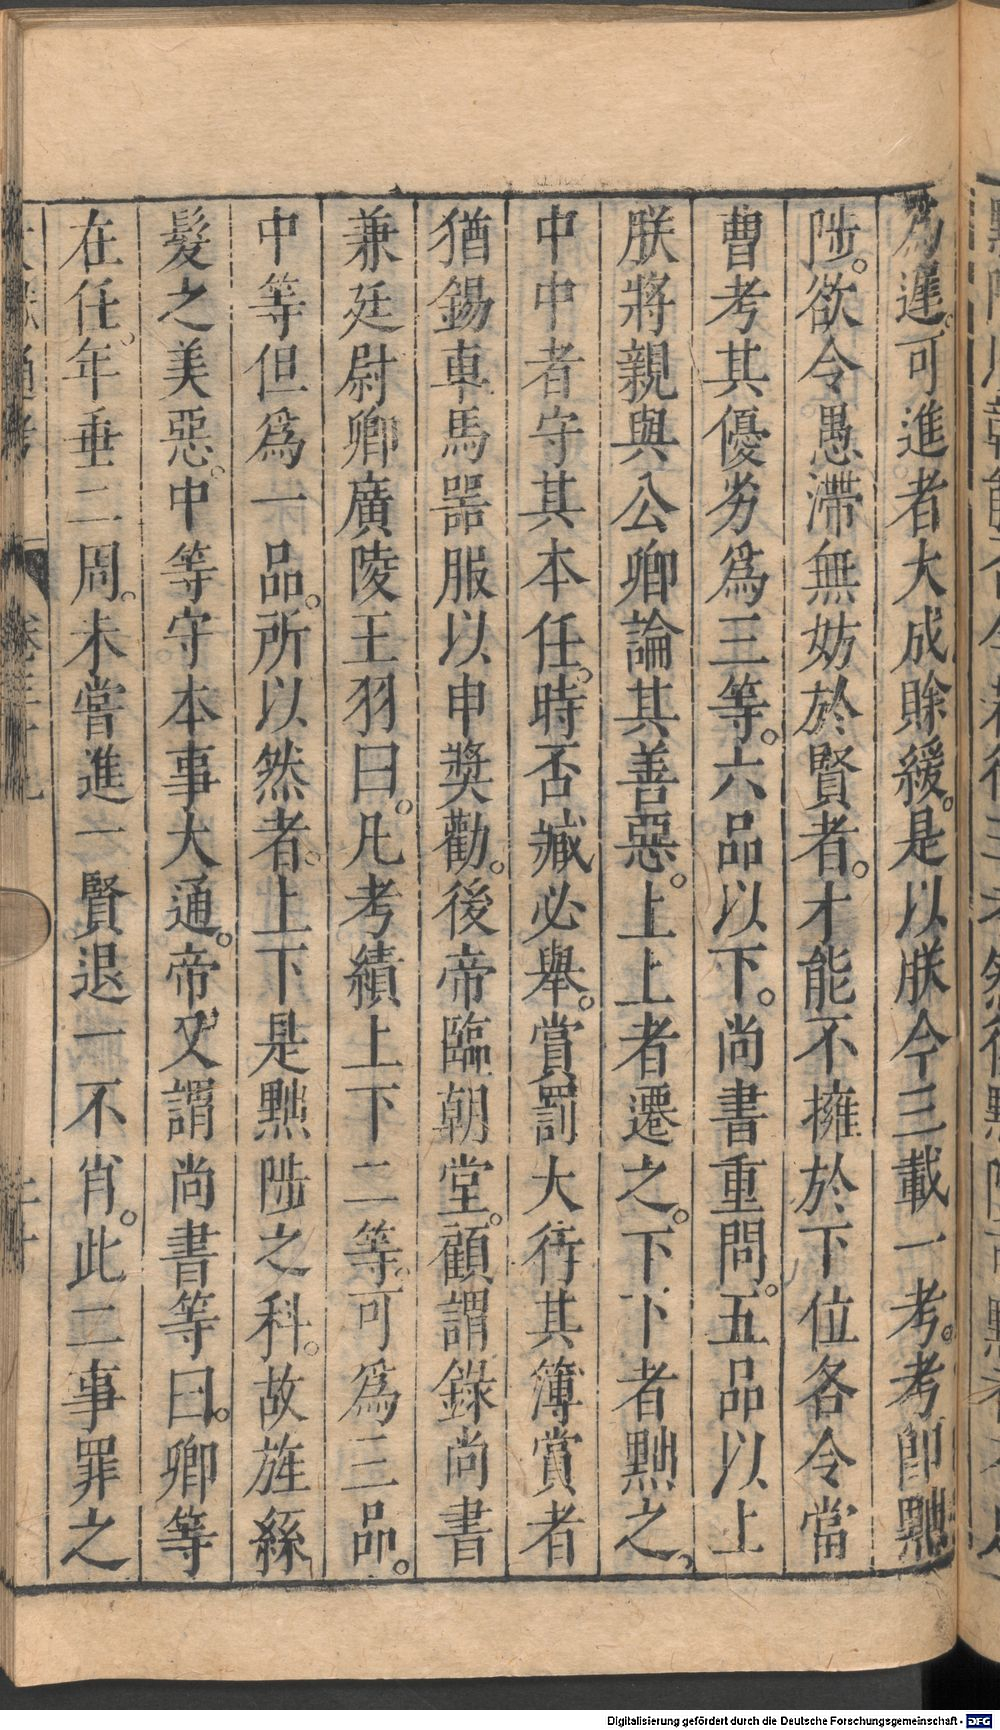 為遲。可進者大成賒緩。是以朕今三載一考。考卽黜
陟。欲令愚滯無妨於賢者。才能不擁於下位各令當
曹考其優劣爲三等。六品以下。尚書重問。五品以上
朕將親與公卿論其善惡。上上者遷之。下下者黜之。
中中者守其本任。時否臧必舉。賞罰大行其簿賞者
猶錫車馬器服以申獎勸。後帝臨朝堂。顧謂錄尚書
兼廷尉卿廣陵王羽曰。凡考績上下二等。可爲三品。
中等但爲一品。所以然者。上下是黜陟之科。故旌絲
髮之美惡。中等守本事大通。帝又謂尚書等曰。卿等
在任。年垂二周。未嘗進一賢退一不肖。此二事罪之
Digitalisierung gefördert durch die Deutsche Forschungsgemeinschaft - DFG